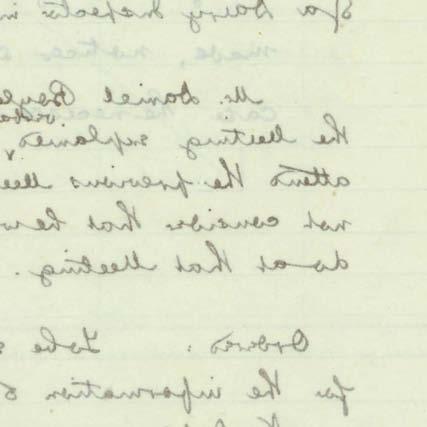 of a Dairy Inspector in
made, notice
Mr. Daniel Boyle
the Meeting explained
attend the previous Mee
not consider that he w
do at that Meeting.
Ordered: To be s
for the information o